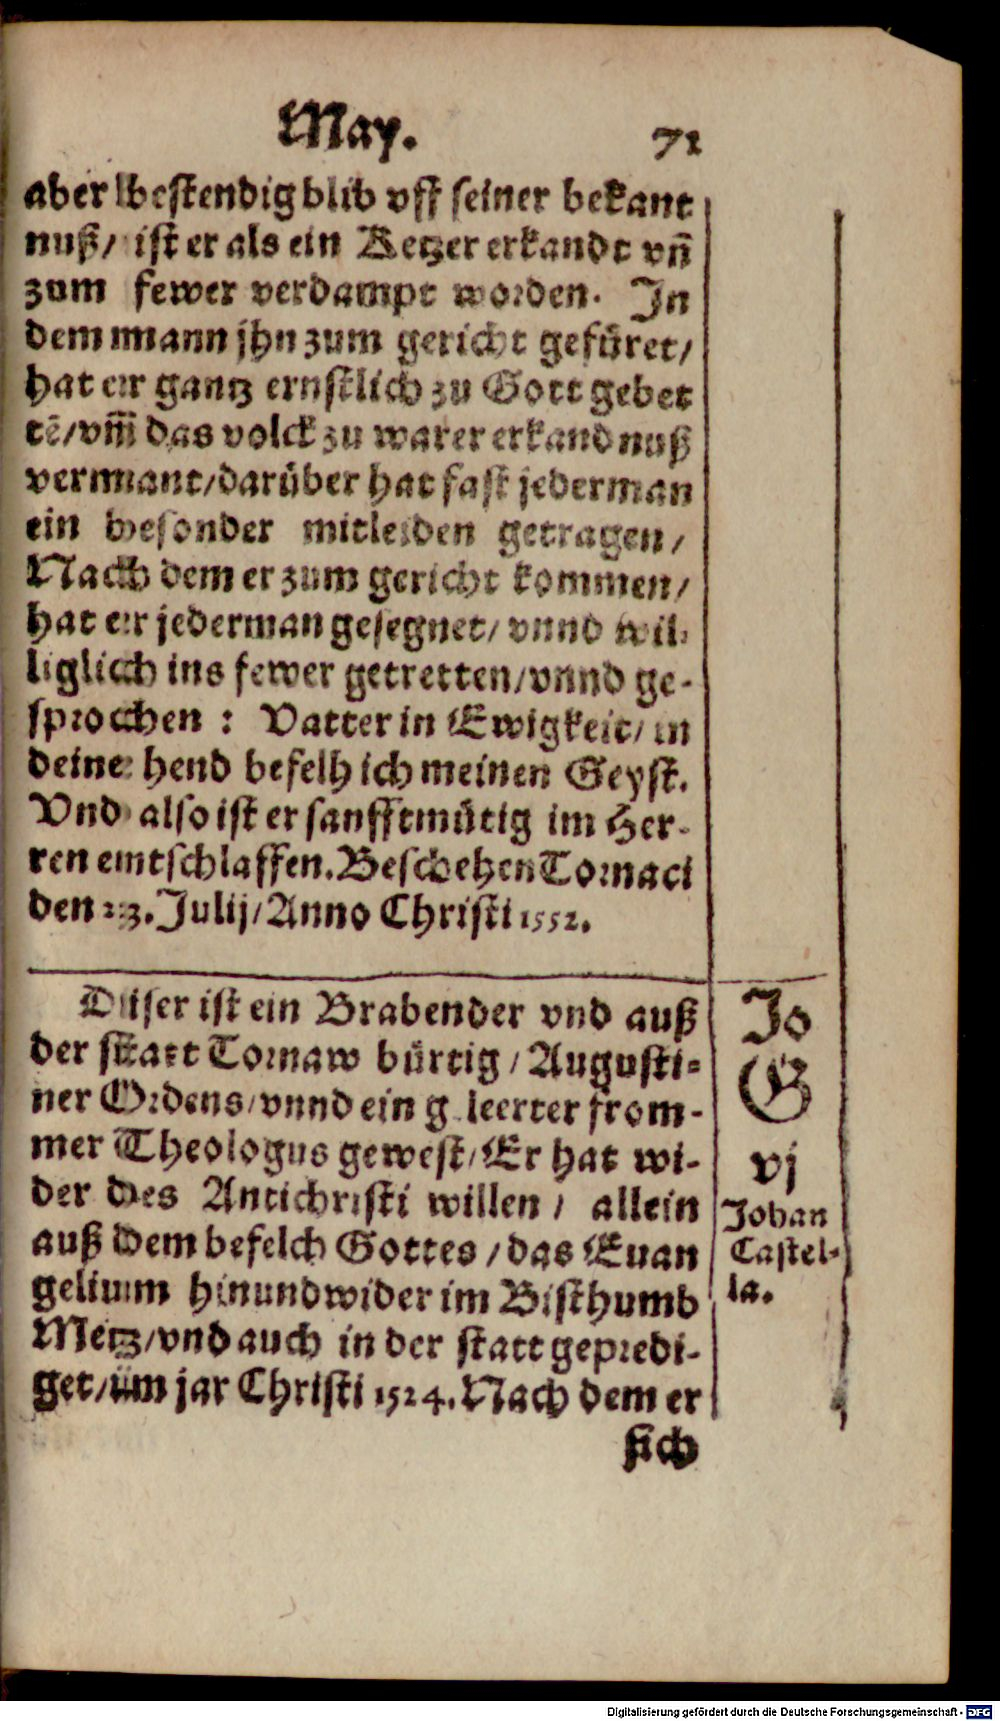 May. 71
aber bestendig blib vff seiner bekant
nuß/ ist er als ein Ketzer erkandt vñ
zum fewer verdampt worden. In
dem mann jhn zum gericht gefüret/
hat er gantz ernstlich zu Gott gebet
tẽ/vñ das volck zu warer erkandnuß
vermant/darüber hat fast jederman
ein besonder mitleiden getragen/
Nach dem er zum gericht kommen/
hat er jederman gesegnet/ vnnd wil-
liglich ins fewer getretten/vnnd ge-
sprochen : Vatter in Ewigkeit/ in
deine hend befelh ich meinen Geyst.
Vnd also ist er sanfftmütig im Her-
ren entschlaffen. Beschehen Tornaci
den 23. Julij/Anno Christi 1552.
Diser ist ein Brabender vnd auß
der statt Tornaw bürtig/Augusti-
ner Ordens/vnnd ein geleerter from-
mer Theologus gewest/Er hat wi-
der des Antichristi willen/ allein
auß dem befelch Gottes/das Euan
gelium hinundwider im Bisthumb
Metz/vnd auch in der statt gepredi-
get/im jar Christi 1524. Nach dem er
sich
Jo
G
vj
Johan
Castel-
la.
Digitalisierung gefördert durch die Deutsche Forschungsgemeinschaft - DFG